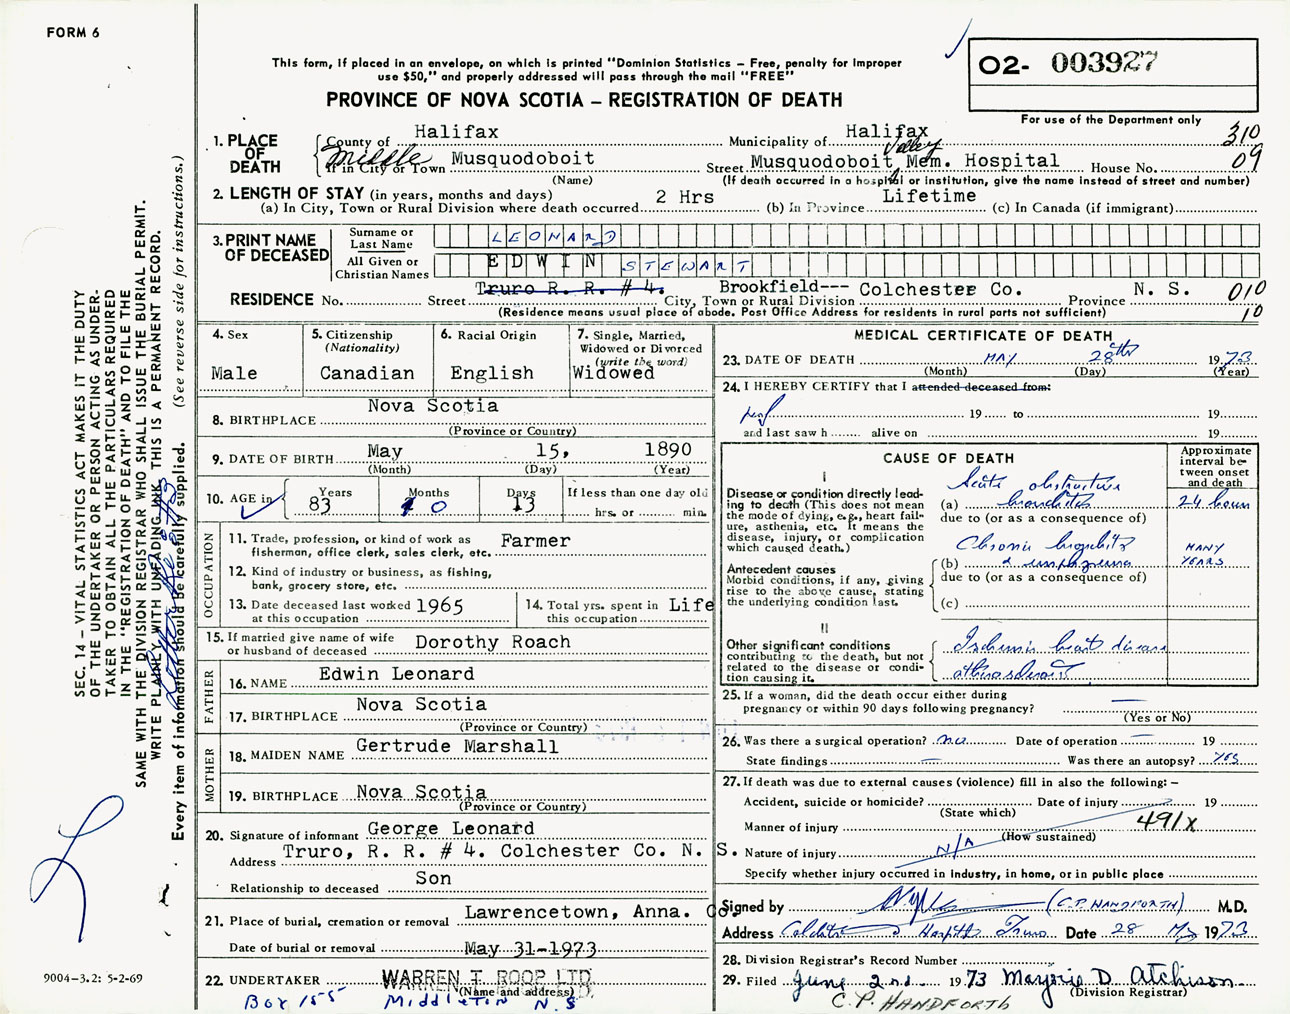 FORM 6
This form, if placed in an envelope, on which is printed "Dominion Statistics – Free, penalty for improper
use $50," and properly addressed will pass through the mail "FREE"
PROVINCE OF NOVA SCOTIA – REGISTRATION OF DEATH
O2- 003927
For use of the Department only
310
09
1. PLACE OF DEATH
County of Halifax Municipality of Halifax
Middle If in City or Town Musquodoboit Street Musquodoboit Valley Mem. Hospital House No.
(Name) (If death occurred in a hospital or institution, give the name instead of street and number)
2. LENGTH OF STAY (in years, months and days)
(a) In City, Town or Rural Division where death occurred 2 Hrs (b) In Province Lifetime (c) In Canada (if immigrant)
3. PRINT NAME OF DECEASED
Surname or Last Name LEONARD
All Given or Christian Names EDWIN STEWART
RESIDENCE No. Street Truro R. R. # 4. City, Town or Rural Division Brookfield--- Colchester Co. Province N. S. 010
(Residence means usual place of abode. Post Office Address for residents in rural parts not sufficient) 10
4. Sex
Male
5. Citizenship
(Nationality)
Canadian
6. Racial Origin
English
7. Single, Married,
Widowed or Divorced
(write the word)
Widowed
8. BIRTHPLACE Nova Scotia
(Province or Country)
9. DATE OF BIRTH May 15, 1890
(Month) (Day) (Year)
10. AGE in Years Months Days If less than one day old
83 0 13 hrs. or min.
OCCUPATION
11. Trade, profession, or kind of work as
fisherman, office clerk, sales clerk, etc. Farmer
12. Kind of industry or business, as fishing,
bank, grocery store, etc.
13. Date deceased last worked
at this occupation 1965
14. Total yrs. spent in
this occupation Life
15. If married give name of wife
or husband of deceased Dorothy Roach
FATHER
16. NAME Edwin Leonard
17. BIRTHPLACE Nova Scotia
(Province or Country)
MOTHER
18. MAIDEN NAME Gertrude Marshall
19. BIRTHPLACE Nova Scotia
(Province or Country)
20. Signature of informant George Leonard
Address Truro, R. R. # 4. Colchester Co. N. S.
Relationship to deceased Son
21. Place of burial, cremation or removal Lawrencetown, Anna. Co
Date of burial or removal May 31-1973
22. UNDERTAKER WARREN T. ROOP LTD.
(Name and address)
Box 155 Middleton N.S
MEDICAL CERTIFICATE OF DEATH
23. DATE OF DEATH MAY 28th 1973
(Month) (Day) (Year)
24. I HEREBY CERTIFY that I attended deceased from:
19 to 19
and last saw h alive on 19
CAUSE OF DEATH
Approximate
interval be-
tween onset
and death
I
Disease or condition directly lead-
ing to death (This does not mean
the mode of dying, e.g., heart fail-
ure, asthenia, etc. It means the
disease, injury, or complication
which caused death.)
(a) Acute obstructive bronchitis 24 hours
due to (or as a consequence of)
Antecedent causes
Morbid conditions, if any, giving
rise to the above cause, stating
the underlying condition last.
(b) Chronic bronchitis & emphysema MANY YEARS
due to (or as a consequence of)
(c)
II
Other significant conditions
contributing to the death, but not
related to the disease or condi-
tion causing it.
Ischemic heart disease
atherosclerosis
25. If a woman, did the death occur either during
pregnancy or within 90 days following pregnancy? —
(Yes or No)
26. Was there a surgical operation? no Date of operation — 19
State findings — Was there an autopsy? yes
27. If death was due to external causes (violence) fill in also the following: –
Accident, suicide or homicide? Date of injury 19
(State which)
Manner of injury 491X
(How sustained)
Nature of injury N/A
Specify whether injury occurred in industry, in home, or in public place
Signed by (C.P. HANDFORTH) M.D.
Address Colchester Hospital Truro Date 28 May 1973
28. Division Registrar's Record Number
29. Filed June 2nd 1973 Marjorie D. Atchison
(Division Registrar)
C.P. HANDFORTH
SEC. 14 – VITAL STATISTICS ACT MAKES IT THE DUTY
OF THE UNDERTAKER OR PERSON ACTING AS UNDER-
TAKER TO OBTAIN ALL THE PARTICULARS REQUIRED
IN THE "REGISTRATION OF DEATH" AND TO FILE THE
SAME WITH THE DIVISION REGISTRAR WHO SHALL ISSUE THE BURIAL PERMIT.
WRITE PLAINLY WITH UNFADING INK. THIS IS A PERMANENT RECORD.
Every item of information should be carefully supplied. (See reverse side for instructions.)
9004-3.2: 5-2-69